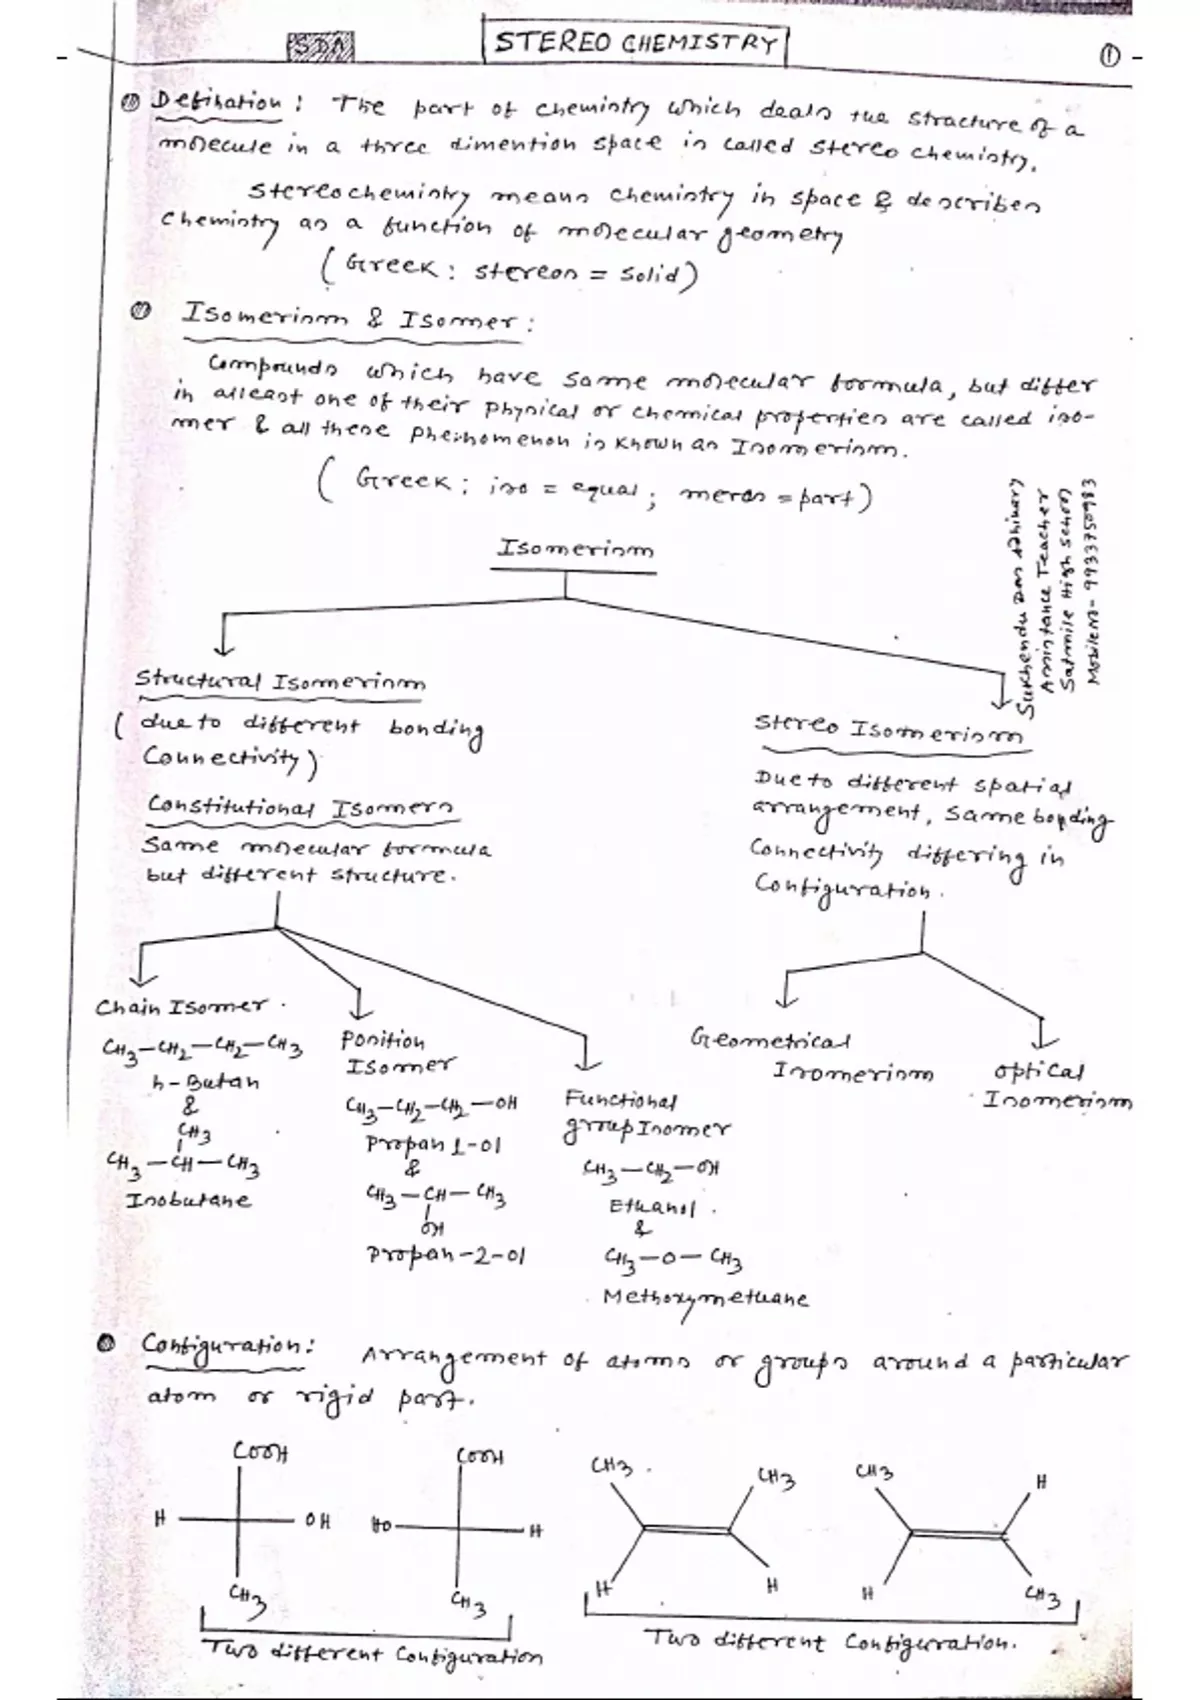 SDA
STEREO CHEMISTRY
1
Defination : The part of chemistry which deals the structure of a
molecule in a three dimention space is called stereo chemistry.
Stereochemistry means chemistry in space & describes
chemistry as a function of molecular geometry
(Greek : stereos = solid)
Isomerism & Isomer :
Compounds which have same molecular formula, but differ
in atleast one of their physical or chemical properties are called iso-
mer & all these phenomenon is known as Isomerism.
(Greek ; iso = equal ; meros = part)
Sukhendu Das Adhikary
Assistance Teacher
Satmile High School
Mobile No- 9933750983
Isomerism
Structural Isomerism
(due to different bonding
Connectivity)
Constitutional Isomers
Same molecular formula
but different structure.
Stereo Isomerism
Due to different spatial
arrangement, same bonding
Connectivity differing in
Configuration.
Chain Isomer.
CH3-CH2-CH2-CH3
n-Butan
&
CH3
CH3-CH-CH3
Isobutane
Position
Isomer
CH3-CH2-CH2-OH
Propan 1-ol
&
CH3-CH-CH3
OH
Propan-2-ol
Functional
group Isomer
CH3-CH2-OH
Ethanol.
&
CH3-O-CH3
Methoxymethane
Geometrical
Isomerism
Optical
Isomerism
Configuration: Arrangement of atoms or groups around a particular
atom or rigid part.
COOH
H OH
CH3
COOH
HO H
CH3
Two different Configuration
CH3 CH3
H H
CH3 H
H CH3
Two different Configuration.